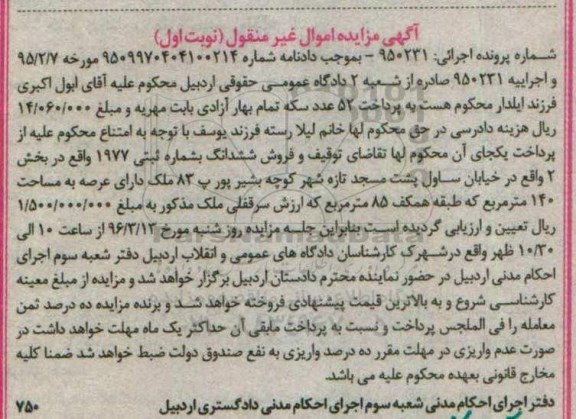 آگهی مزایده اموال غیر منقول (نوبت اول)
شماره پرونده اجرائی: ۹۵۰۲۳۱ - بموجب دادنامه شماره ۹۵۰۹۹۷۰۴۰۴۱۰۰۲۱۴ مورخه ۹۵/۲/۷
و اجراییه ۹۵۰۲۳۱ صادره از شعبه ۲ دادگاه عمومی حقوقی اردبیل محکوم علیه آقای ابول اکبری
فرزند ایلدار محکوم هست به پرداخت ۵۲ عدد سکه تمام بهار آزادی بابت مهریه و مبلغ ۱۴/۰۶۰/۰۰۰
ریال هزینه دادرسی در حق محکوم لها خانم لیلا رسته فرزند یوسف با توجه به امتناع محکوم علیه از
پرداخت یکجای آن محکوم لها تقاضای توقیف و فروش ششدانگ بشماره ثبتی ۱۹۷۷ واقع در بخش
۲ واقع در خیابان ساول پشت مسجد تازه شهر کوچه بشیر پور پ ۸۳ ملک دارای عرصه به مساحت
۱۴۰ مترمربع که طبقه همکف ۸۵ مترمربع که ارزش سرقفلی ملک مذکور به مبلغ ۱/۵۰۰/۰۰۰/۰۰۰
ریال تعیین و ارزیابی گردیده است بنابراین جلسه مزایده روز شنبه مورخ ۹۶/۳/۱۳ از ساعت ۱۰ الی
۱۰/۳۰ ظهر واقع درشهرک کارشناسان دادگاه های عمومی و انقلاب اردبیل دفتر شعبه سوم اجرای
احکام مدنی اردبیل در حضور نماینده محترم دادستان اردبیل برگزار خواهد شد و مزایده از مبلغ معینه
کارشناسی شروع و به بالاترین قیمت پیشنهادی فروخته خواهد شد و برنده مزایده ده درصد ثمن
معامله را فی الملجس پرداخت و نسبت به پرداخت مابقی آن حداکثر یک ماه مهلت خواهد داشت در
صورت عدم واریزی در مهلت مقرر ده درصد واریزی به نفع صندوق دولت ضبط خواهد شد ضمنا کلیه
مخارج قانونی بعهده محکوم علیه می باشد.
دفتر اجرای احکام مدنی شعبه سوم اجرای احکام مدنی دادگستری اردبیل ۷۵۰